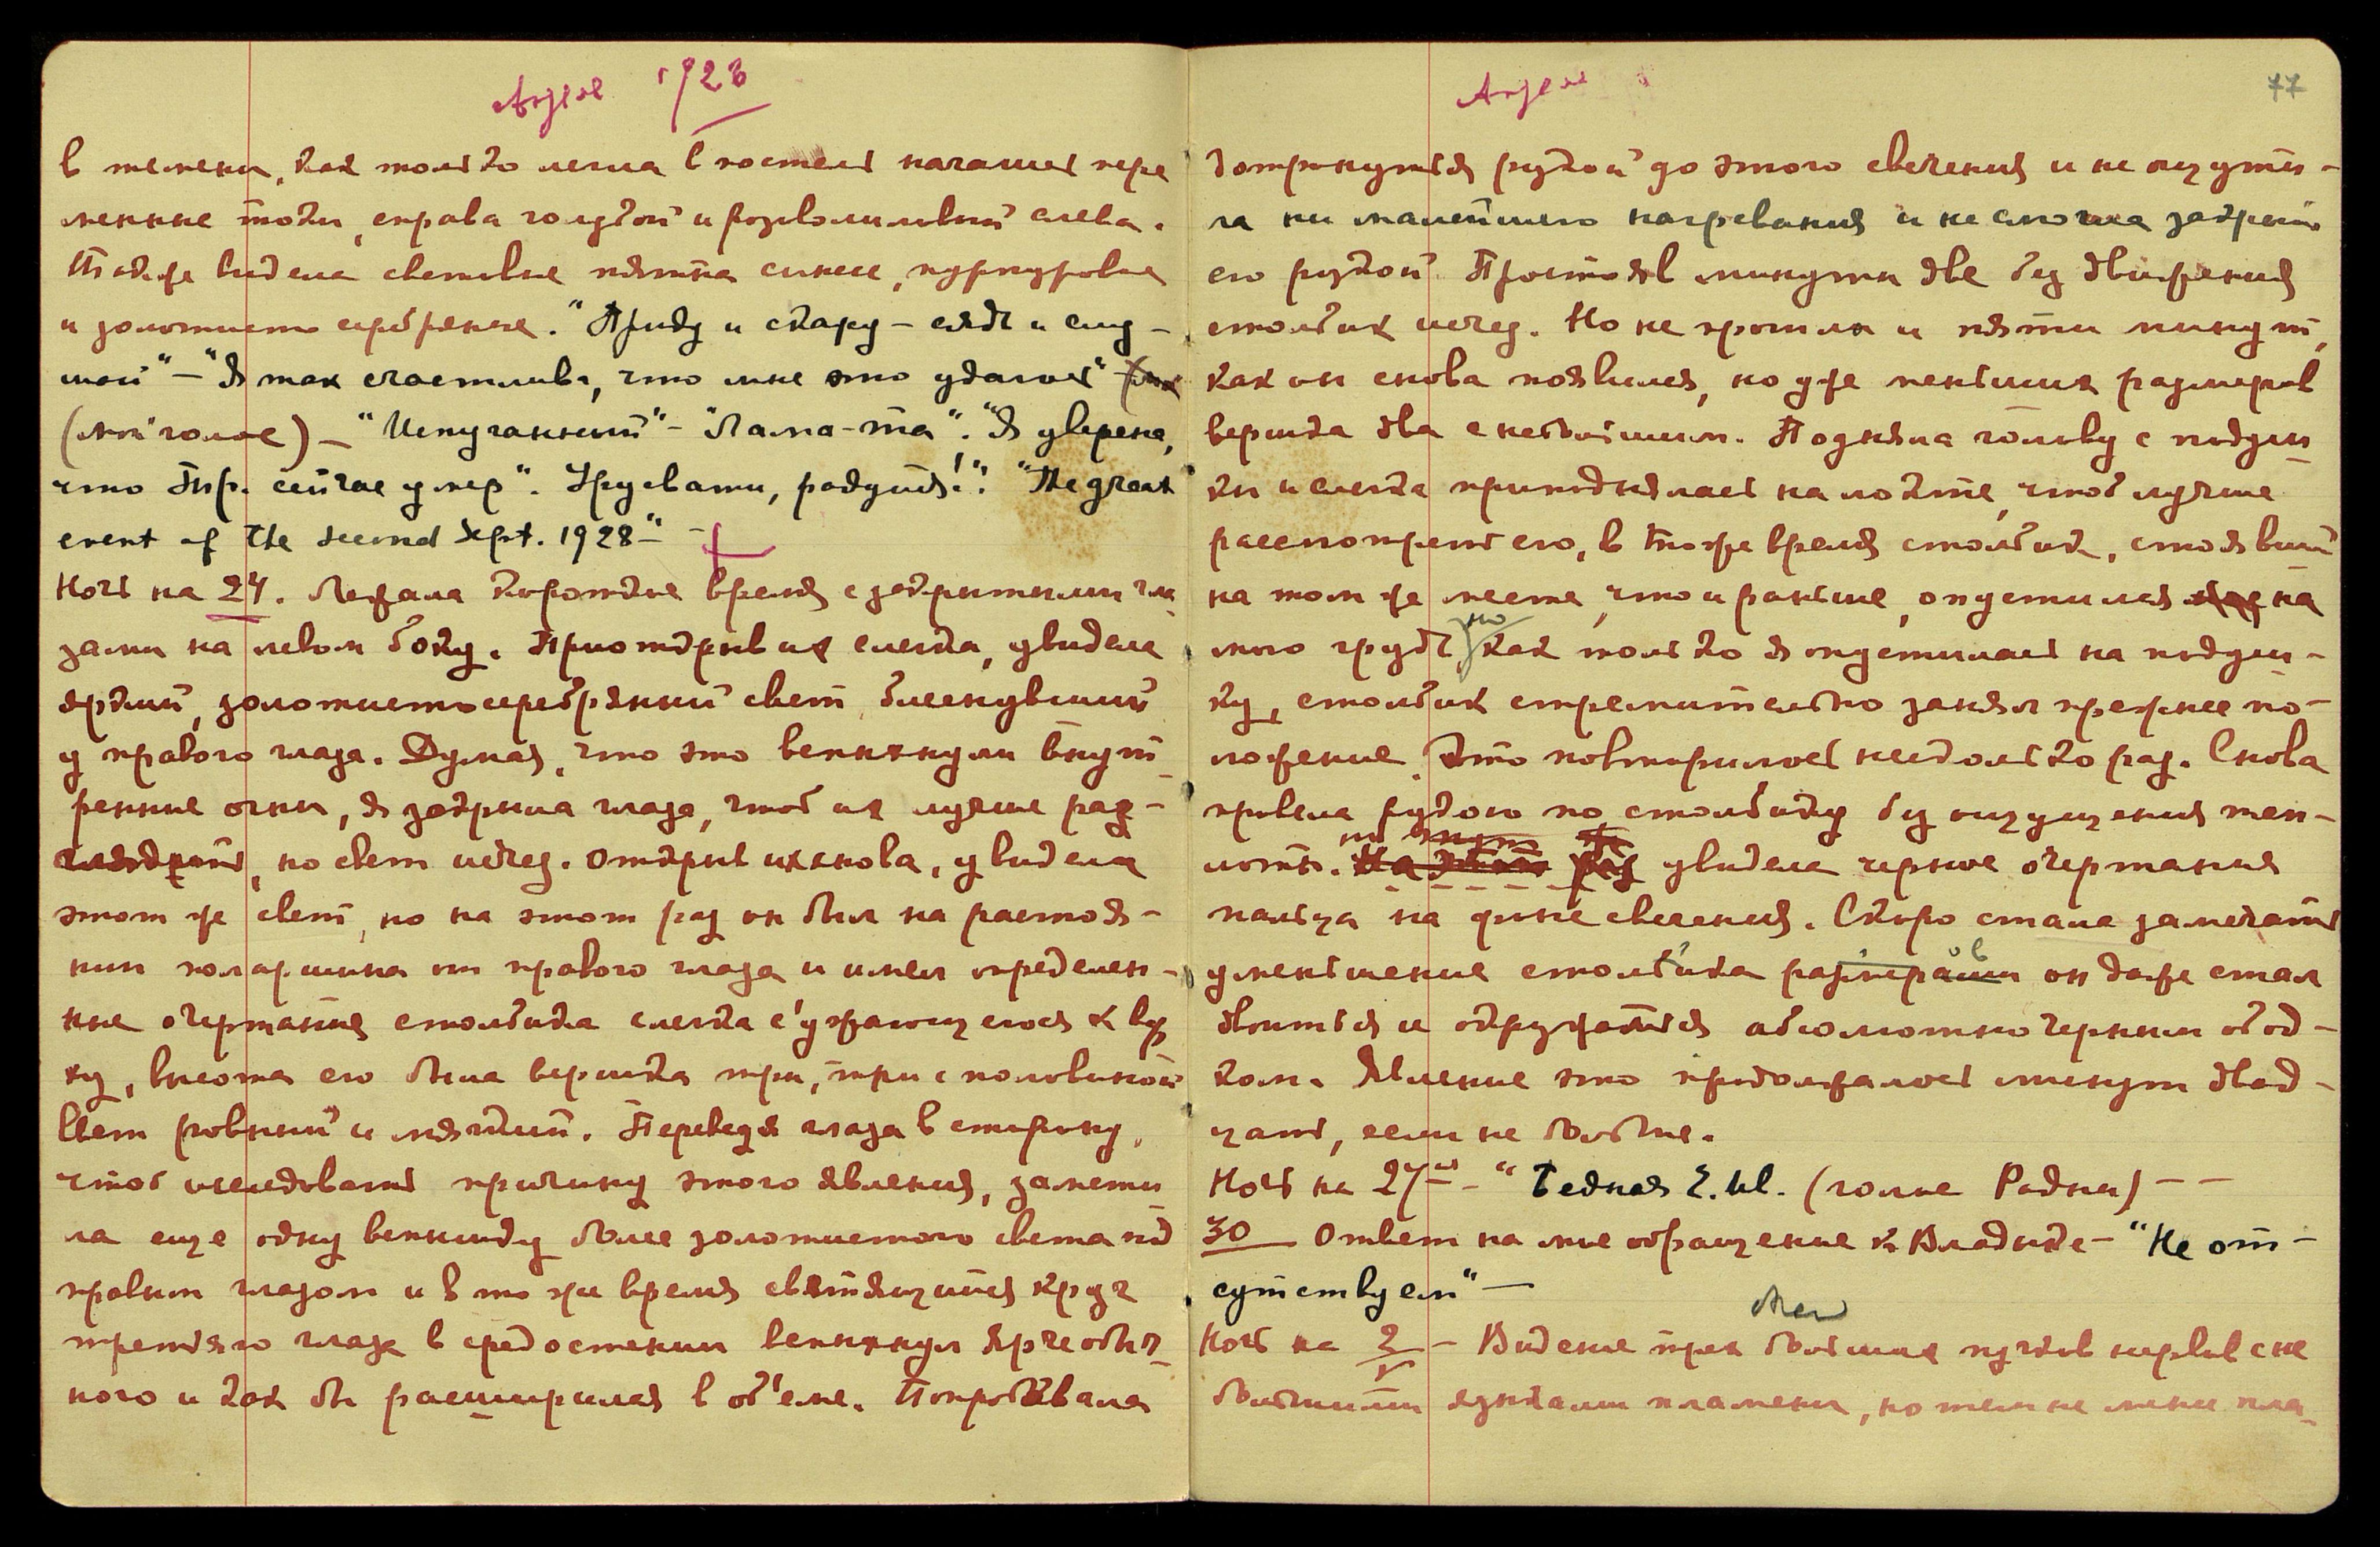 Август 1928
в темени, как только легла в постель начались пере
менные токи, справа голубой и розоволиловый слева.
Также видела световые пятна синее, пурпуровые
и золотисто серебряные. "Приду и скажу – сядь и слу –
шай" – "Я так счастлива, что мне это удалось"
(мой голос) – "Испуганный" – "Лама-та". "Я уверена,
что Пир. сейчас умер". Урусвати, радуйся!". "The great
event of the second Sept. 1928" –
Ночь на 24. Лежала короткое время с закрытыми гла
зами на левом боку. Приоткрыв их слегка, увидела
яркий, золотистосеребряный свет, блеснувший
у правого глаза. Думая, что это вспыхнули внут
ренние огни, я закрыла глаза, чтоб их лучше раз –
глядеть, но свет исчез. Открыв их снова, увидела
этот же свет, но на этот раз он был на растоя –
нии поларшина от правого глаза и имел определен –
ные очертания столбика слегка с'уживающегося к вер
ху, высота его была вершка три, три с половиной
Свет ровный и мягкий. Переведя глаза в сторону,
чтоб исследовать причину этого явления, замети
ла еще одну вспышку более золотистого света под
правым глазом и в то же время светящийся круг
третьяго глаза в средостении вспыхнул ярче обыч
ного и как бы расширился в об'еме. Попробовала
Август
77
дотронуться рукой до этого свечения и не ощути –
ла ни малейшего нагревания и не смогла закрыть
его рукой. Простояв минуты две без движения
столбик исчез. Но не прошли и пяти минут,
как он снова появился, но уже меньших размеров
вершка два с небольшим. Подняла голову с подуш
ки и слегка приподнялась на локте, чтоб лучше
рассмотреть его, в тоже время столбик, стоявший
на том же месте, что и раньше, опустился на
мою грудь, но как только я опустилась на подуш –
ку, столбик стремительно занял прежнее по –
ложение. Это повторилось несколько раз. Снова
провела рукою по столбику без ощущения теп –
лоты. увидела черное очертание
пальца на фоне свечения. Скоро стала замечать
уменьшение столбика размеров он даже стал
двоиться и окружаться абсолютно черным обод –
ком. Явление это продолжалось минут двад –
цать, если не больше.
Ночь на 27ое – "Бедная Е. И. (голос Радны) – –
30 Ответ на мое обращение к Владыке – "Не от –
сутствуем" –
Ночь на 2 – Видение трех больших пучков нервов с не
большими языками пламени, но тем не менее пла